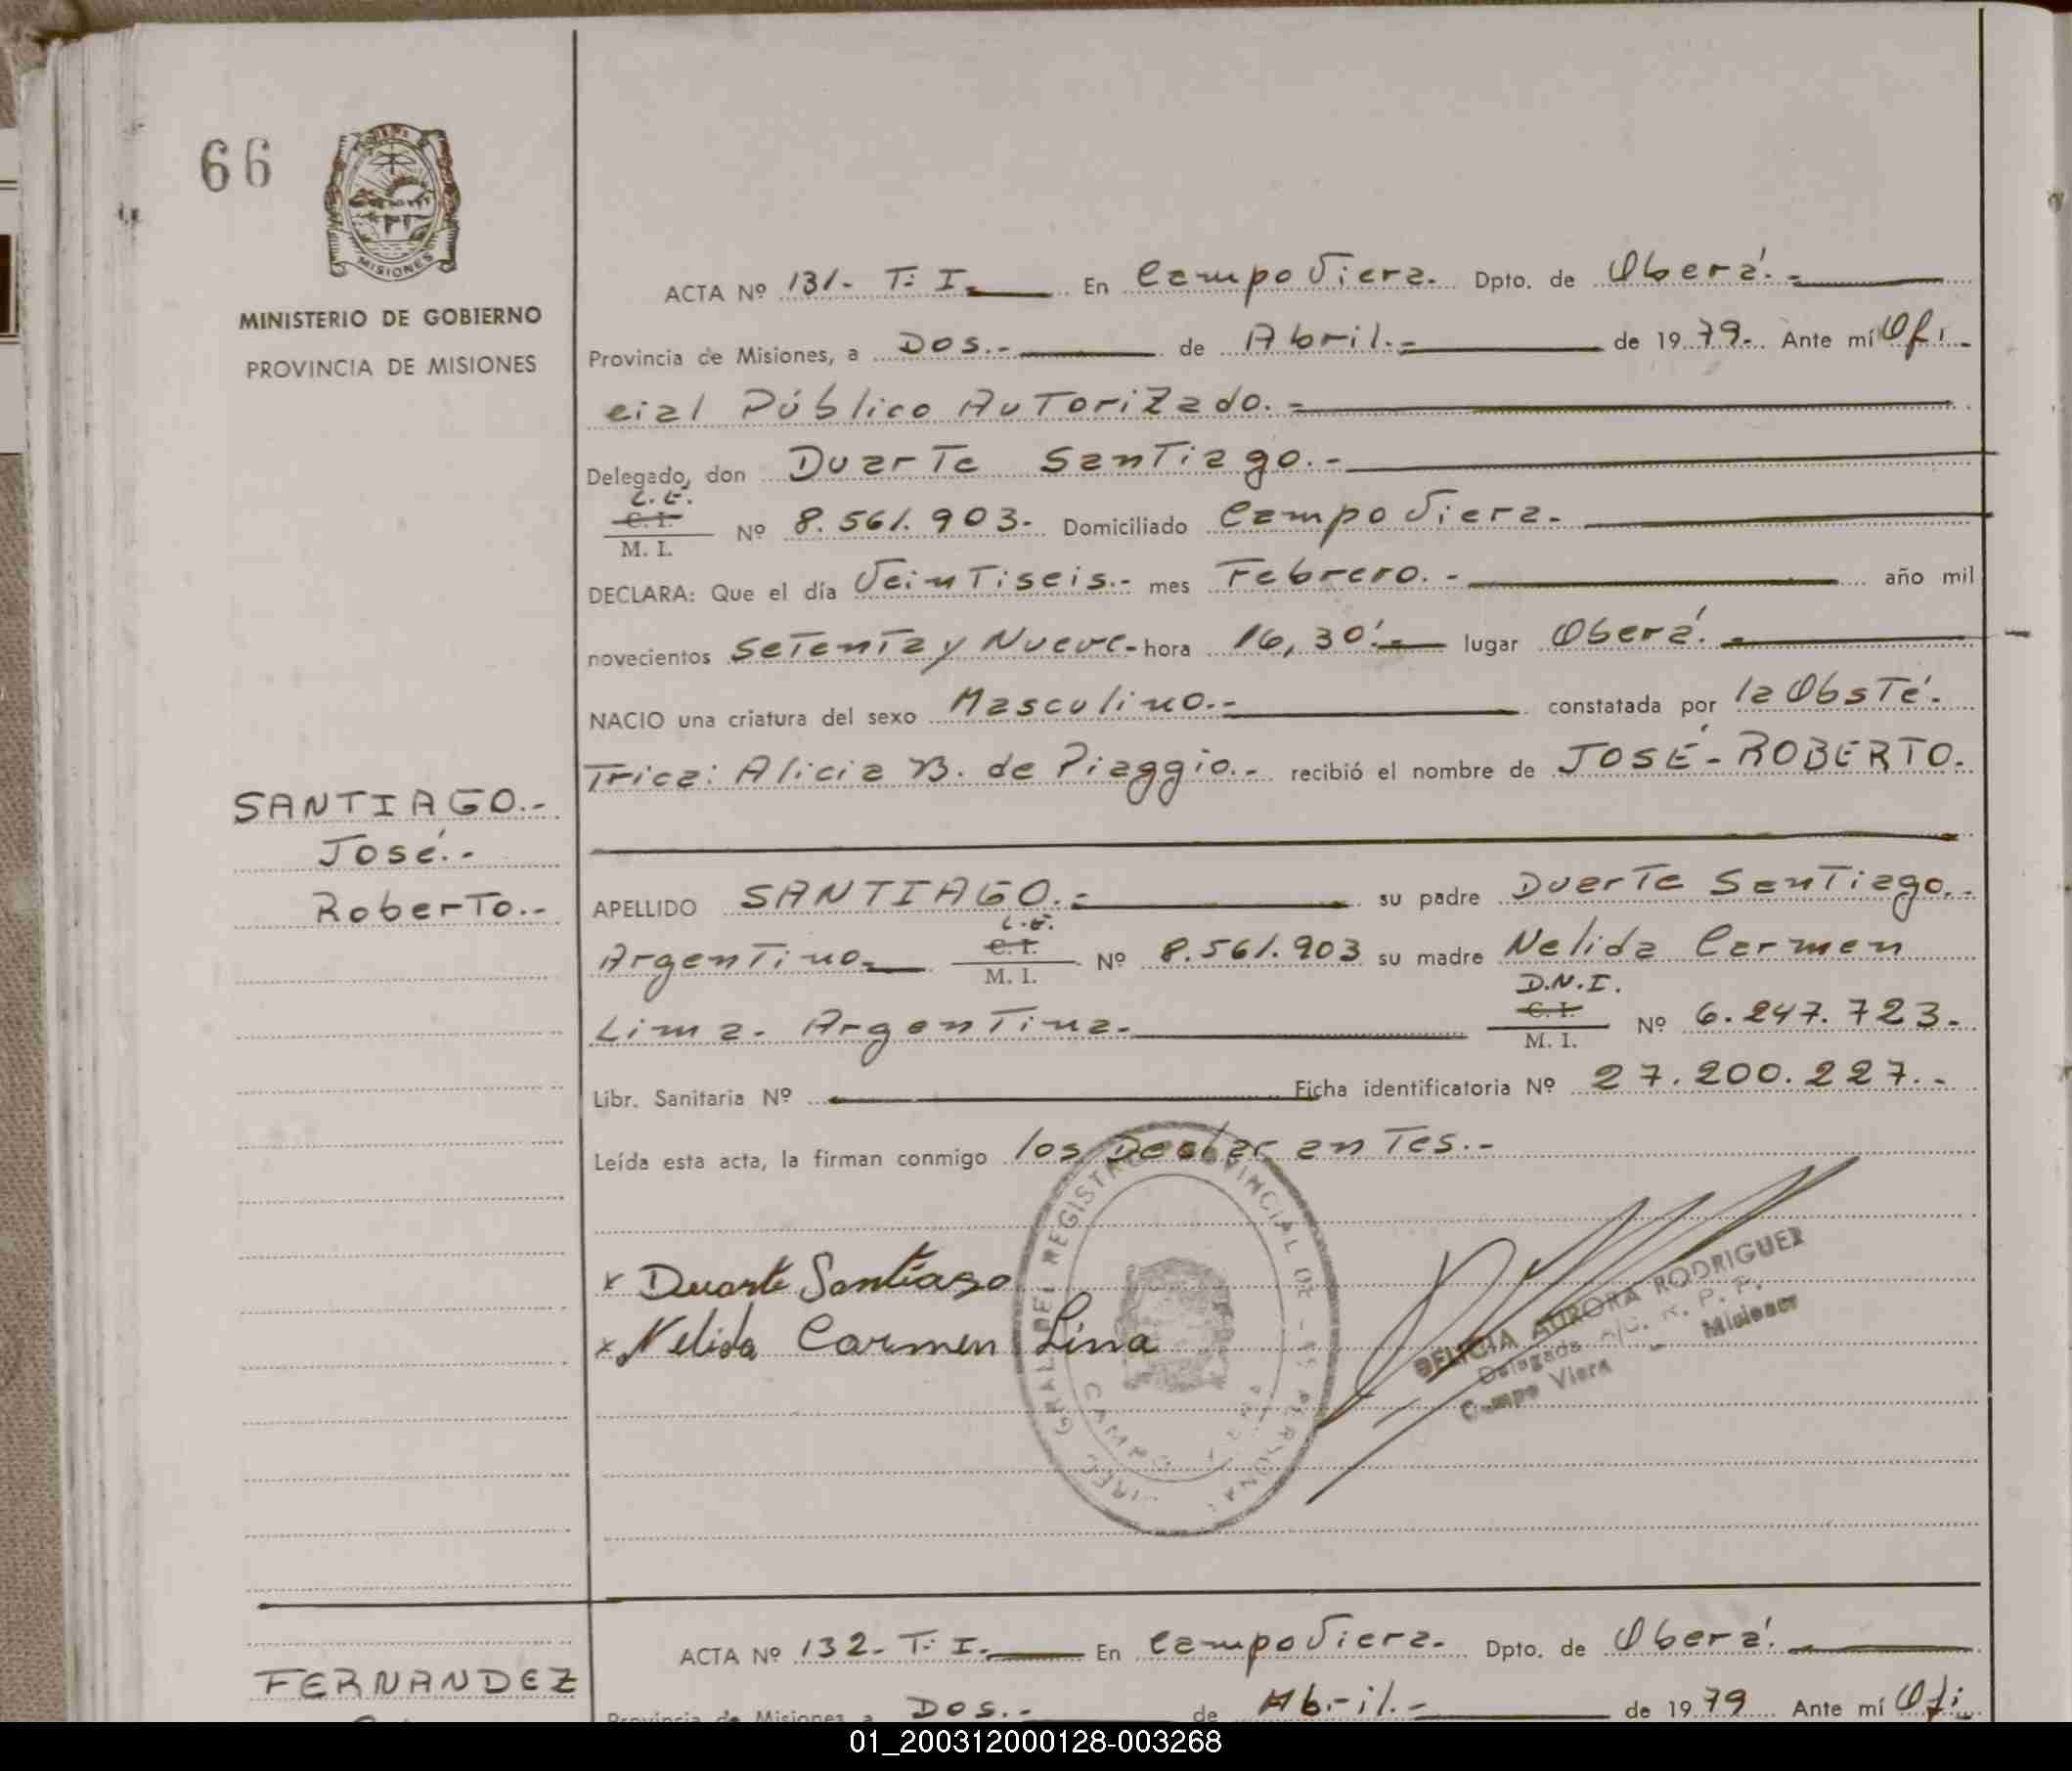 66
MISIONES
MINISTERIO DE GOBIERNO
PROVINCIA DE MISIONES
ACTA Nº 131.- T: I. En Campo Viera. Dpto. de Oberá.-
Provincia de Misiones, a Dos.- de Abril.- de 1979.- Ante mí Ofi
cial Público Autorizado.-
Delegado, don Duarte Santiago.-
L.E.
C. I.
M. I. Nº 8.561.903.- Domiciliado Campo Viera.-
DECLARA: Que el día Veintiseis.- mes Febrero.- año mil
novecientos Setenta y Nueve.- hora 16,30'.- lugar Oberá.-
NACIO una criatura del sexo Masculino.- constatada por la Obsté.
trica: Alicia B. de Piaggio.- recibió el nombre de JOSÉ-ROBERTO.
SANTIAGO.-
José.-
Roberto.-
APELLIDO SANTIAGO.- su padre Duarte Santiago.-
L.E.
Argentino.- C. I.
M. I. Nº 8.561.903 su madre Nelida Carmen
D.N.I.
Lima.- Argentina.- C. I.
M. I. Nº 6.247.723.-
Libr. Sanitaria Nº Ficha identificatoria Nº 27.200.227.-
Leída esta acta, la firman conmigo los Declarantes.-
x Duarte Santiago
x Nelida Carmen Lima
DELICIA AURORA RODRIGUEZ
Delegada A/C. R. P. P.
Campo Viera - Misiones
CAMPO VIERA
ACTA Nº 132.- T: I.- En Campo Viera.- Dpto. de Oberá.-
FERNANDEZ
Provincia de Misiones a Dos.- de Abril.- de 1979 Ante mí Ofi
01_200312000128-003268